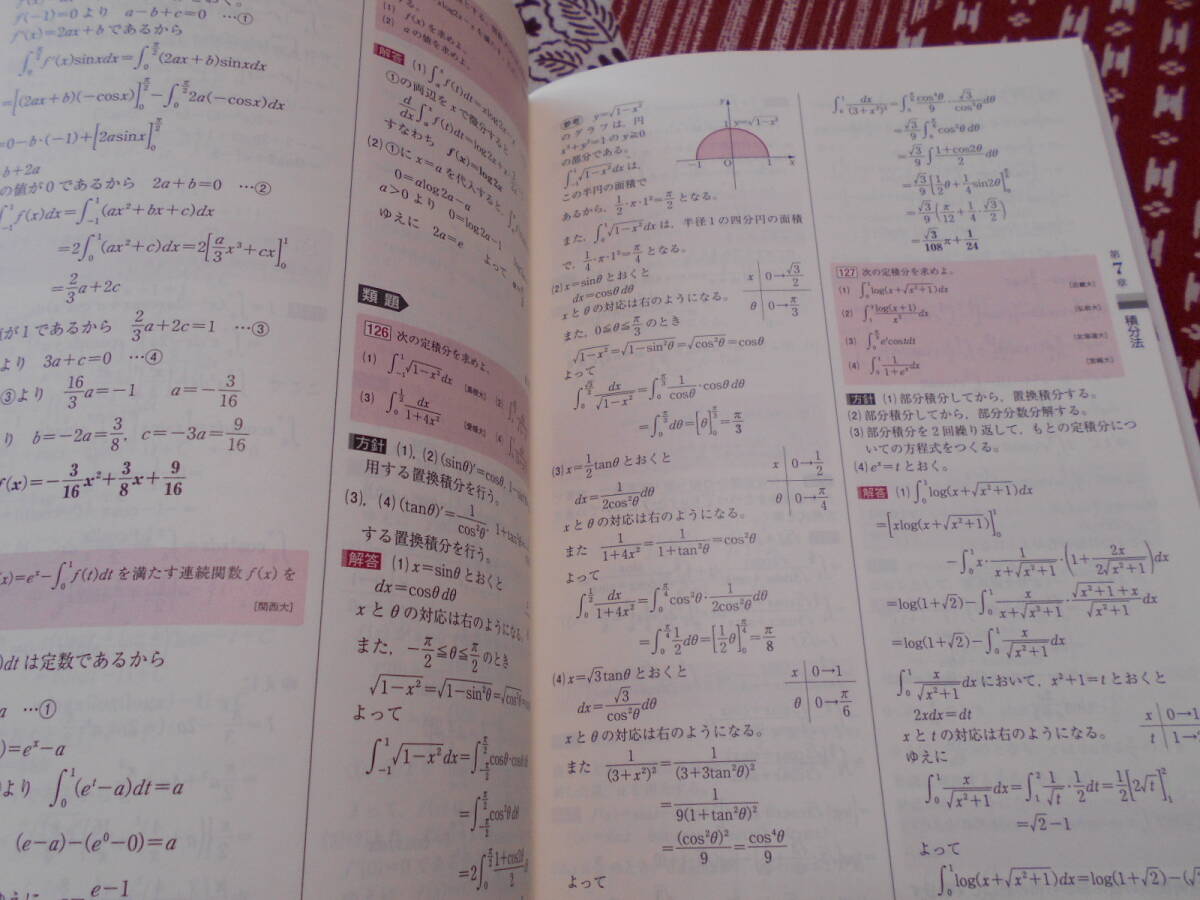 f(-1)=0より a-b+c=0 …①
f'(x)=2ax+bであるから
∫₀^{π/2} f'(x)sinxdx=∫₀^{π/2}(2ax+b)sinxdx
=[(2ax+b)(-cosx)]₀^{π/2}-∫₀^{π/2}2a(-cosx)dx
=0-b·(-1)+[2asinx]₀^{π/2}
b+2a
の値が0であるから 2a+b=0 …②
∫₋₁¹f(x)dx=∫₋₁¹(ax²+bx+c)dx
=2∫₀¹(ax²+c)dx=2[a/3 x³+cx]₀¹
=2/3 a+2c
値が1であるから 2/3 a+2c=1 …③
より 3a+c=0 …④
③より 16/3 a=-1 a=-3/16
り b=-2a=3/8, c=-3a=9/16
f(x)=-3/16 x²+3/8 x+9/16
(x)=eˣ-∫₀¹f(t)dtを満たす連続関数f(x)を
[関西大]
)dtは定数であるから
a …①
)=eˣ-a
より ∫₀¹(eᵗ-a)dt=a
(e-a)-(e⁰-0)=a
e-1
(1) f(x)を求めよ。
(2) aの値を求めよ。
解答 (1)∫ₐˣf(t)dt=xlog2x-
①の両辺をxで微分すると
d/dx∫ₐˣf(t)dt=log2x+
すなわち f(x)=log2x
(2)①にx=aを代入すると,
0=alog2a-a
a>0より 0=log2a-1
ゆえに 2a=e
よって
類題
126 次の定積分を求めよ。
(1) ∫₋₁¹√(1-x²)dx
(2)
(3) ∫₀^{1/2} dx/(1+4x²)
(4)
方針 (1), (2)(sinθ)'=cosθ,
用する置換積分を行う。
(3), (4)(tanθ)'=1/cos²θ,
する置換積分を行う。
解答 (1)x=sinθとおくと
dx=cosθdθ
xとθの対応は右のようになる。
また, -π/2≦θ≦π/2のとき
√(1-x²)=√(1-sin²θ)=√(cos²θ)
よって
∫₋₁¹√(1-x²)dx=∫_{-π/2}^{π/2}cosθ·cosθ
=∫_{-π/2}^{π/2}cos²θdθ
=2∫₀^{π/2}(1+cos2θ)/2
参考 y=√(1-x²)
のグラフは, 円
x²+y²=1のy≧0
の部分である。
∫₋₁¹√(1-x²)dxは,
この半円の面積で
あるから, 1/2·π·1²=π/2となる。
y
1
y=√(1-x²)
-1 O 1 x
また, ∫₀¹√(1-x²)dxは, 半径1の四分円の面積
で, 1/4·π·1²=π/4となる。
(2)x=sinθとおくと
dx=cosθdθ
xとθの対応は右のようになる。
x 0→√3/2
θ 0→π/3
また, 0≦θ≦π/3のとき
√(1-x²)=√(1-sin²θ)=√(cos²θ)=cosθ
よって
∫₀^{√3/2} dx/√(1-x²)=∫₀^{π/3} 1/cosθ·cosθdθ
=∫₀^{π/3}dθ=[θ]₀^{π/3}=π/3
(3)x=1/2 tanθとおくと
dx=1/(2cos²θ)dθ
xとθの対応は右のようになる。
x 0→1/2
θ 0→π/4
また 1/(1+4x²)=1/(1+tan²θ)=cos²θ
よって
∫₀^{1/2} dx/(1+4x²)=∫₀^{π/4}cos²θ·1/(2cos²θ)dθ
=∫₀^{π/4}1/2 dθ=[1/2 θ]₀^{π/4}=π/8
(4)x=√3tanθとおくと
dx=√3/cos²θ dθ
xとθの対応は右のようになる。
x 0→1
θ 0→π/6
また 1/(3+x²)²=1/(3+3tan²θ)²
=1/9(1+tan²θ)²
=(cos²θ)²/9=cos⁴θ/9
よって
∫₀¹ dx/(3+x²)²=∫₀^{π/6} cos⁴θ/9·√3/cos²θ dθ
=√3/9∫₀^{π/6}cos²θdθ
=√3/9∫(1+cos2θ)/2 dθ
=√3/9[1/2 θ+1/4 sin2θ]₀^{π/6}
=√3/9(π/12+1/4·√3/2)
=√3/108 π+1/24
127 次の定積分を求めよ。
(1) ∫₀¹log(x+√(x²+1))dx
(2) ∫₁ log(x+1)/x² dx
(3) ∫₀ eᵗcostdt
[北海道大]
(4) ∫₀¹ 1/(1+eˣ) dx
[宮崎大]
方針 (1)部分積分してから, 置換積分する。
(2)部分積分してから, 部分分数分解する。
(3)部分積分を2回繰り返して, もとの定積分につ
いての方程式をつくる。
(4)eˣ=tとおく。
解答 (1)∫₀¹log(x+√(x²+1))dx
=[xlog(x+√(x²+1))]₀¹
-∫₀¹x·1/(x+√(x²+1))·(1+2x/(2√(x²+1)))dx
=log(1+√2)-∫₀¹ x/(x+√(x²+1))·(√(x²+1)+x)/√(x²+1) dx
=log(1+√2)-∫₀¹ x/√(x²+1) dx
∫₀¹ x/√(x²+1) dxにおいて, x²+1=tとおくと
2xdx=dt
xとtの対応は右のようになる。
x 0→1
t 1→
ゆえに
∫₀¹ x/√(x²+1) dx=∫₁² 1/√t·1/2 dt=1/2[2√t]₁²
=√2-1
よって
∫₀¹log(x+√(x²+1))dx=log(1+√2)-(√
第7章
積分法